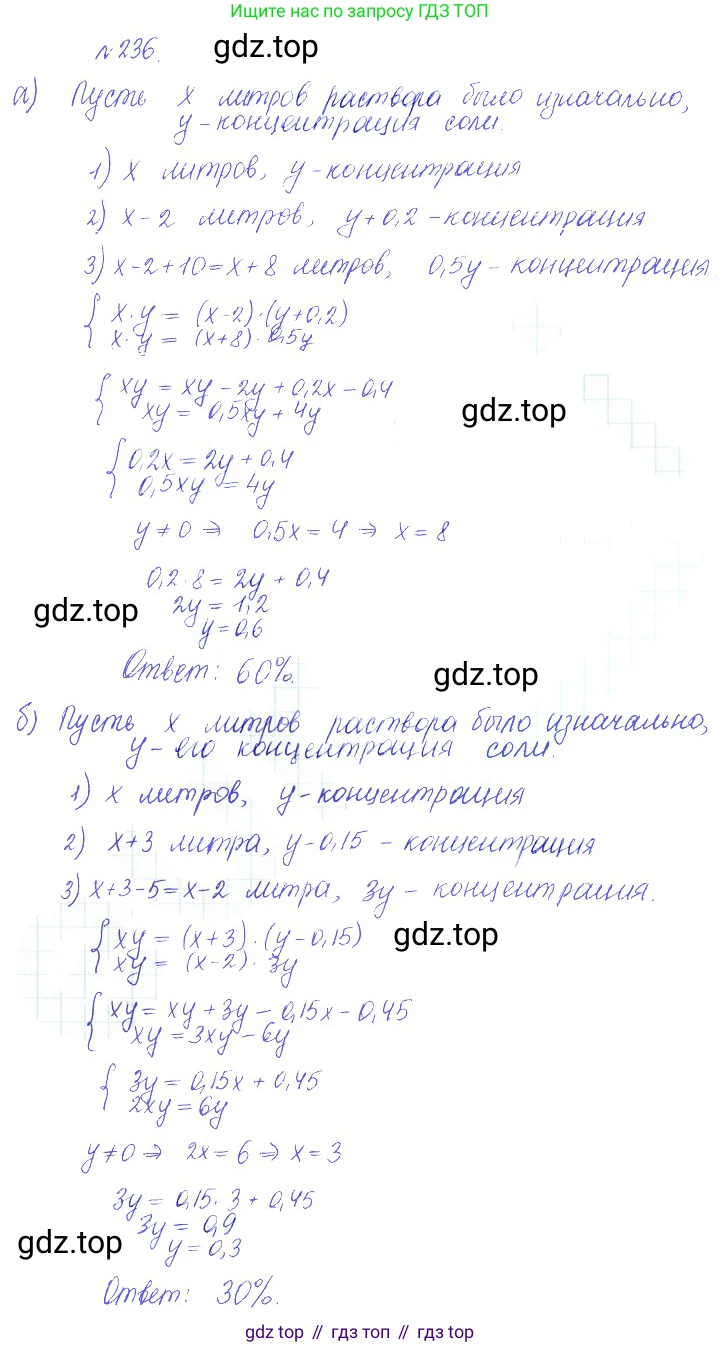 Ищите нас по запросу ГДЗ ТОП
№236. gdz.top
а) Пусть x литров раствора было изначально,
y - концентрация соли.
1) x литров, y - концентрация
2) x - 2 литров, y + 0,2 - концентрация
3) x - 2 + 10 = x + 8 литров, 0,5y - концентрация
{ x · y = (x-2) · (y+0,2)
x · y = (x+8) · 0,5y
{ xy = xy - 2y + 0,2x - 0,4
xy = 0,5xy + 4y
gdz.top
{ 0,2x = 2y + 0,4
0,5xy = 4y
y ≠ 0 ⇒ 0,5x = 4 ⇒ x = 8
0,2 · 8 = 2y + 0,4
gdz.top 2y = 1,2
y = 0,6
Ответ: 60%.
gdz.top
б) Пусть x литров раствора было изначально,
y - его концентрация соли.
1) x литров, y - концентрация
2) x + 3 литра, y - 0,15 - концентрация
3) x + 3 - 5 = x - 2 литра, 3y - концентрация.
{ xy = (x+3) · (y - 0,15) gdz.top
xy = (x-2) · 3y
{ xy = xy + 3y - 0,15x - 0,45
xy = 3xy - 6y
{ 3y = 0,15x + 0,45
2xy = 6y
y ≠ 0 ⇒ 2x = 6 ⇒ x = 3
3y = 0,15 · 3 + 0,45
3y = 0,9
gdz.top y = 0,3
Ответ: 30%.
gdz top // гдз топ // гдз top